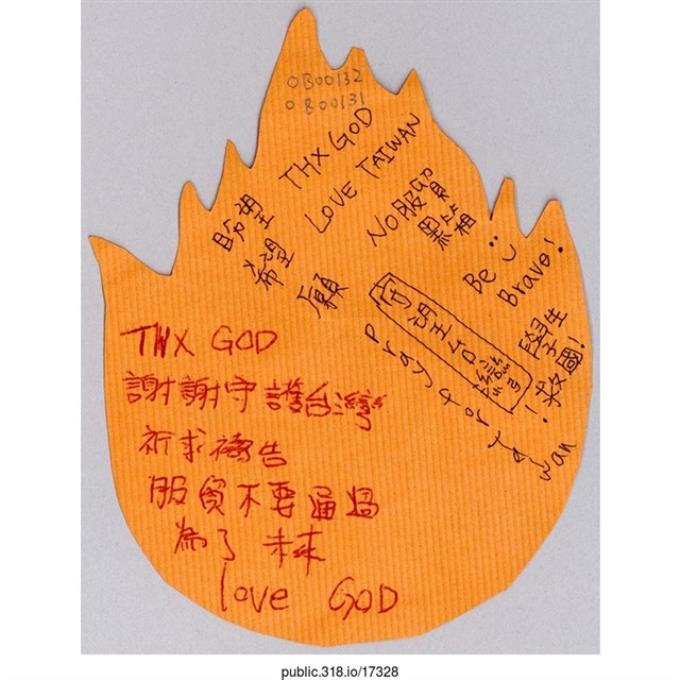 0B00132
0B00131
THX GOD
LOVE TAIWAN
NO服貿
黑箱
盼望
希望
願
Be
Brave!
守望台灣
pray for Taiwan
學生
救國!
THX GOD
謝謝守護台灣
祈求禱告
服貿不要通過
為了 未來
love GOD
public.318.io/17328